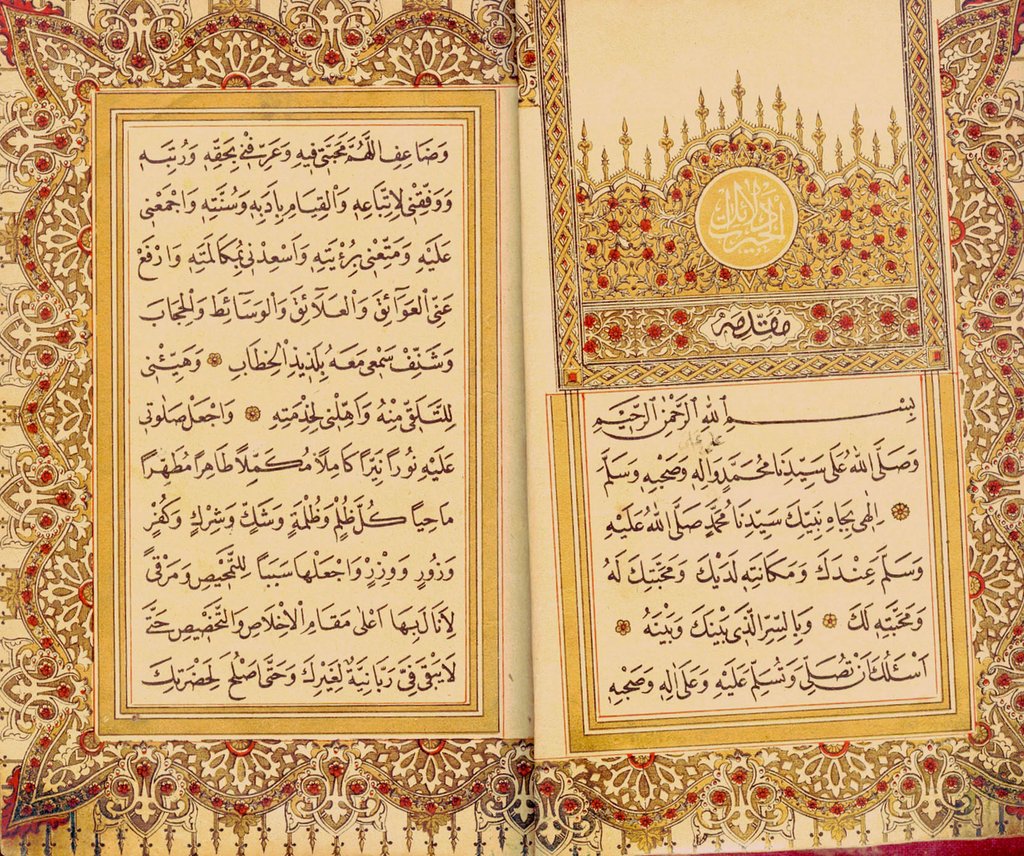 مقدمه
بِسْمِ اللهِ الرَّحْمٰنِ الرَّحِيمِ
وَصَلَّى اللهُ عَلَى سَيِّدِنَا مُحَمَّدٍ وَاٰلِهِ وَصَحْبِهِ وَسَلَّمَ
اِلٰهِى بِجَاهِ نَبِيِّكَ سَيِّدِنَا مُحَمَّدٍ صَلَّى اللهُ عَلَيْهِ
وَسَلَّمَ عِنْدَكَ وَمَكَانَتِهِ لَدَيْكَ وَمَحَبَّتِكَ لَهُ
وَمَحَبَّتِهِ لَكَ وَبِالسِّرِّ الَّذِى بَيْنَكَ وَبَيْنَهُ
اَسْئَلُكَ اَنْ تُصَلِّىَ وَتُسَلِّمَ عَلَيْهِ وَعَلَى اٰلِهِ وَصَحْبِهِ
وَضَاعِفِ اللّٰهُمَّ مَحَبَّتِى فِيهِ وَعَرِّفْنِى بِحَقِّهِ وَرُتَبِهِ
وَوَفِّقْنِى لِاتِّبَاعِهِ وَالْقِيَامِ بِاَدَبِهِ وَسُنَّتِهِ وَاجْمَعْنِى
عَلَيْهِ وَمَتِّعْنِى بِرُؤْيَتِهِ وَاَسْعِدْنِى بِمُكَالَمَتِهِ وَارْفَعْ
عَنِّى الْعَوَآئِقَ وَالْعَلَآئِقَ وَالْوَسَآئِطَ وَالْحِجَابَ
وَشَنِّفْ سَمْعِى مَعَهُ بِلَذِيذِ الْخِطَابِ وَهَيِّئْنِى
لِلتَّلَقِّى مِنْهُ وَاَهِّلْنِى لِخِدْمَتِهِ وَاجْعَلْ صَلٰوتِى
عَلَيْهِ نُورًا نَيِّرًا كَامِلًا مُكَمِّلًا طَاهِرًا مُطَهِّرًا
مَاحِياً كُلَّ ظُلْمٍ وَظُلْمَةٍ وَشَكٍّ وَشِرْكٍ وَكُفْرٍ
وَزُورٍ وَوِزْرٍ وَاجْعَلْهَا سَبَبًا لِلتَّمْحِيصِ وَمَرْقًى
لِاَنَالَ بِهَا اَعْلٰى مَقَامِ الْاِخْلَاصِ وَالتَّخْصِيصِ حَتّٰى
لَا يَبْقٰى فِىَّ رَبَّانِيَّةٌ لِغَيْرِكَ وَحَتّٰى اَصْلُحَ لِحَضْرَتِكَ